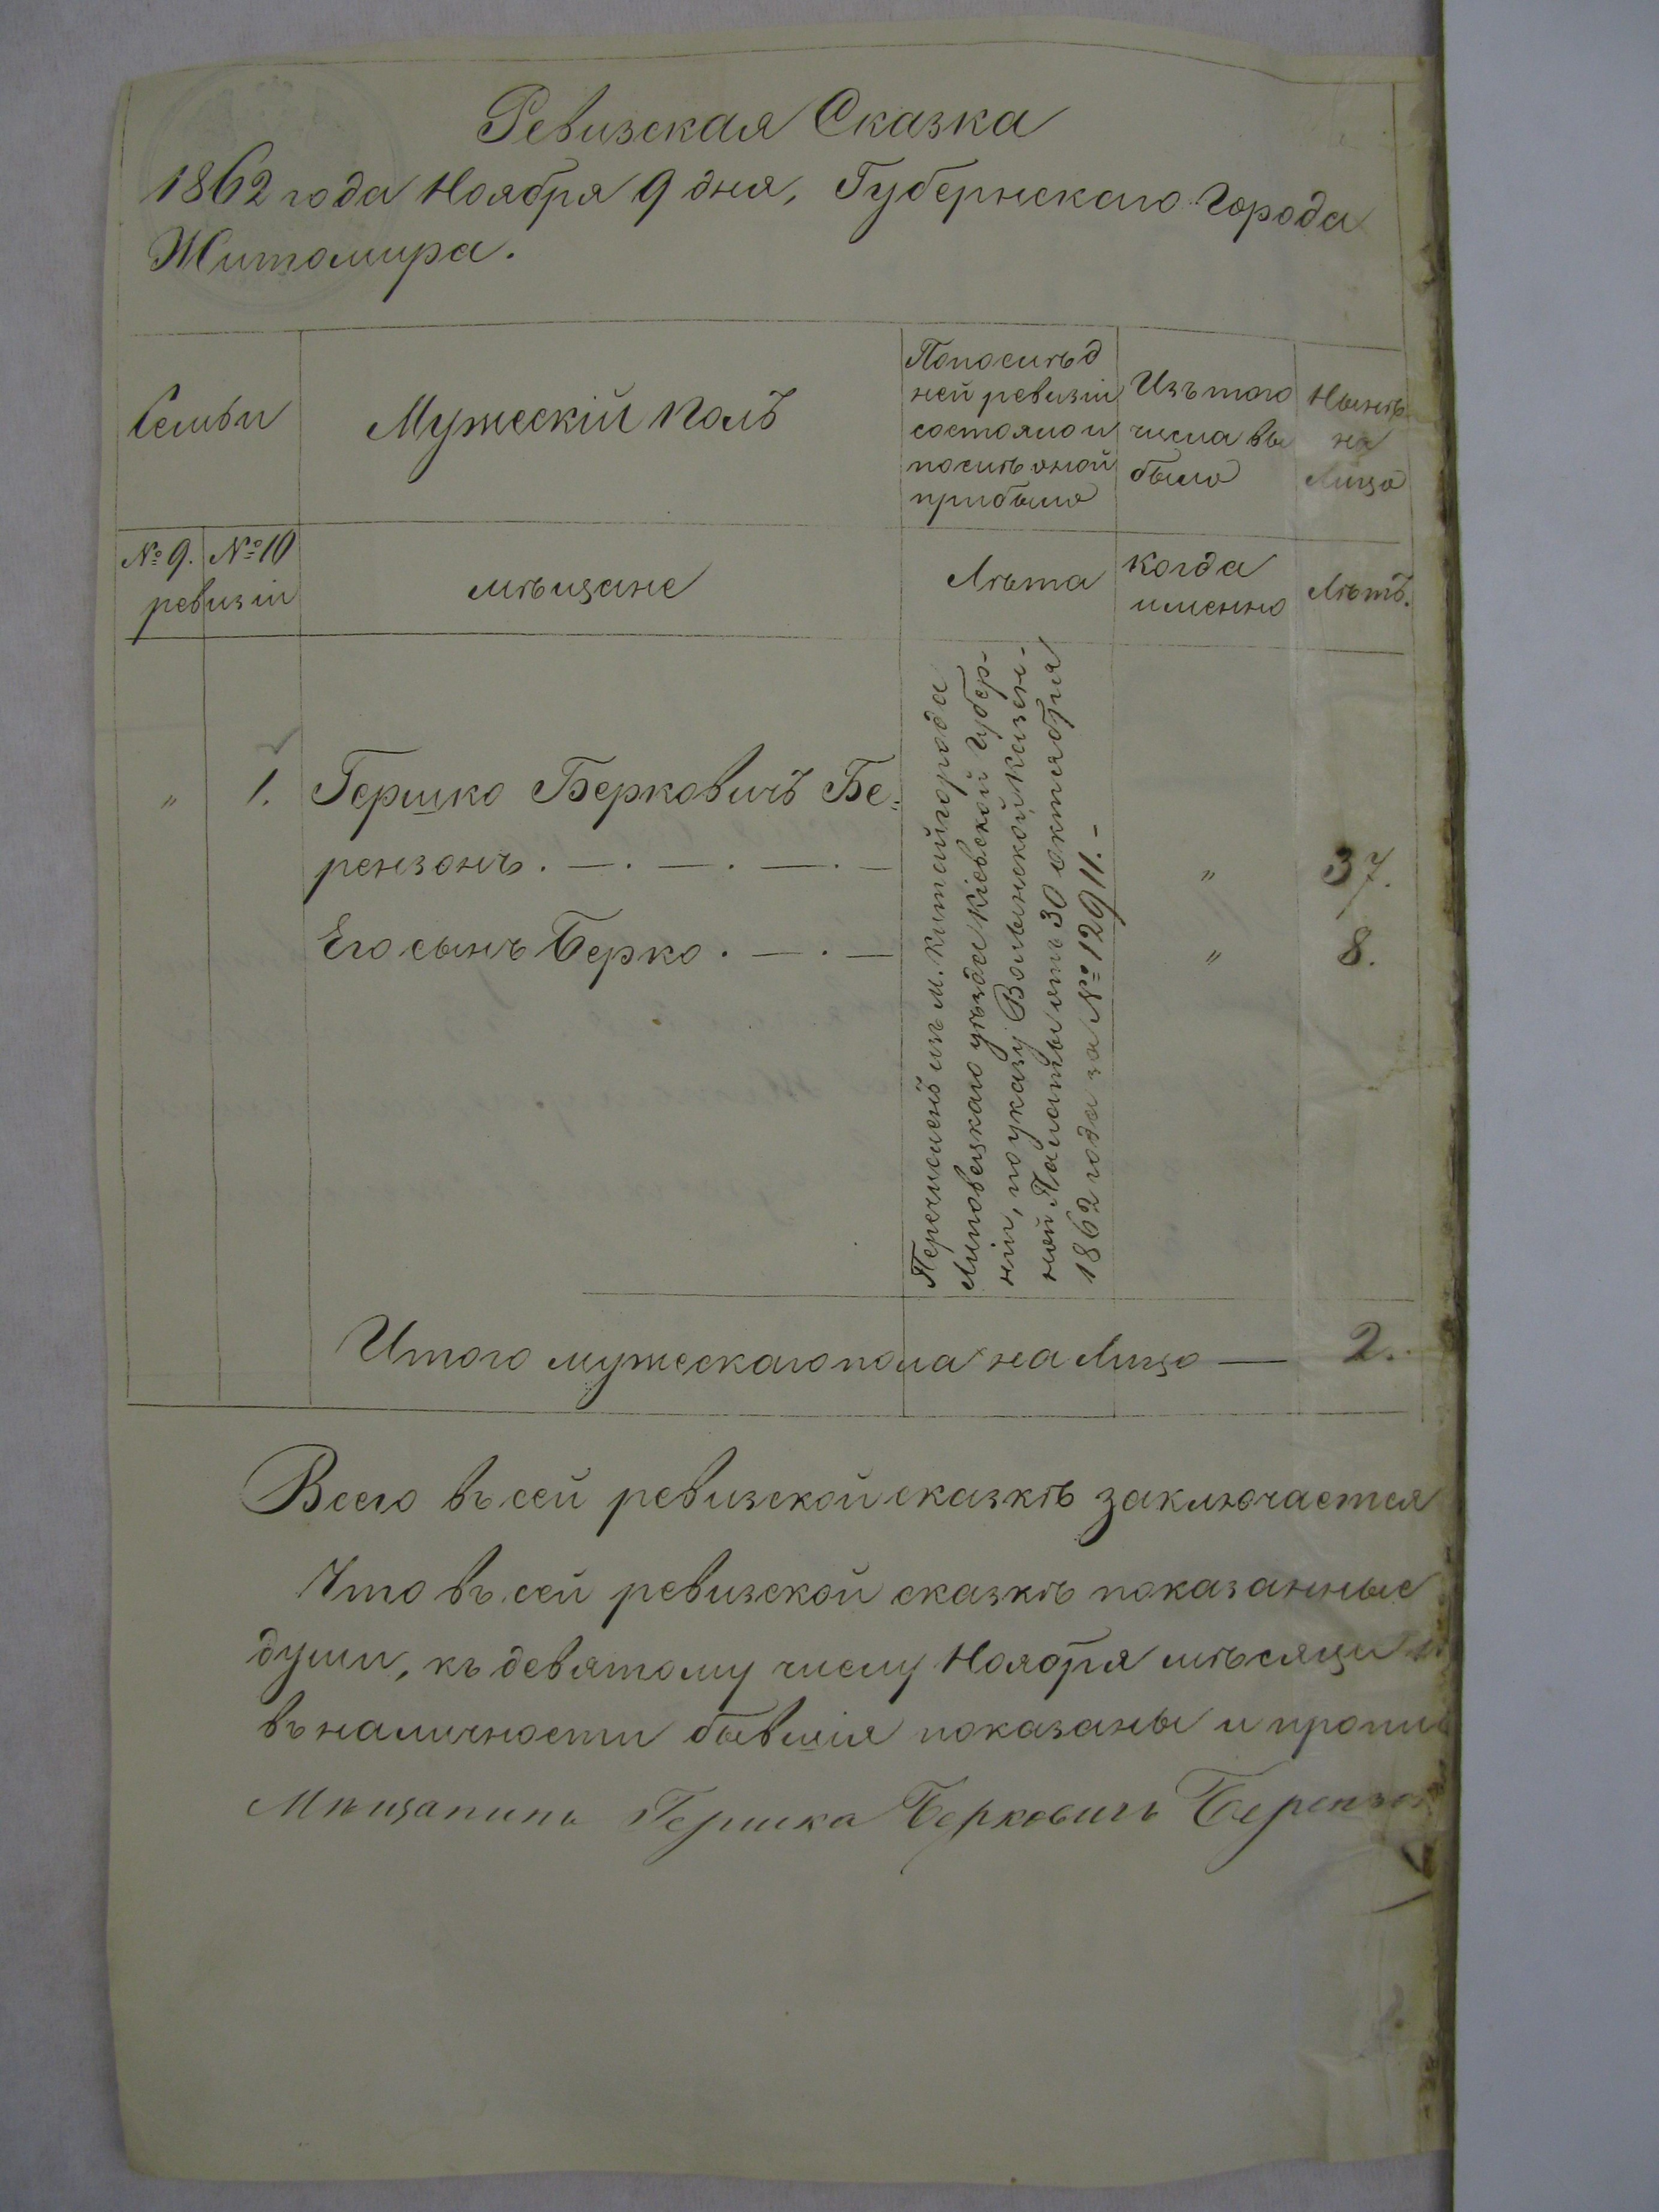 Ревизская Сказка
1862 года Ноября 9 дня, Губернскаго Города
Житомира.
Семьи
Мужескій полъ
Попослѣд
ней ревизіи
состояло и
послѣ оной
прибыло
Изъ того
числа вы
было
Нынѣ
на
лицо
№ 9. № 10
ревизіи
мѣщане
Лѣта
когда
именно
Лѣтъ.
Перечисленъ изъ м. Китайгорода
Липовецкаго уѣзда Кіевской Губер-
ніи, по указу Волынской Казен-
ной Палаты отъ 30 октября
1862 года за № 12911.-
" 1. Гершко Берковичъ Бе-
рензонъ. —. —. —. — " 37.
Его сынъ Берко. —. — " 8.
Итого мужескаго пола на лицо — 2.
Всего въ сей ревизской сказкѣ заключается
Что въ сей ревизской сказкѣ показанные
души, къ девятому числу Ноября мѣсяца
въ наличности бывшія показаны и
Мѣщанинъ Гершка Берковичъ Берензон